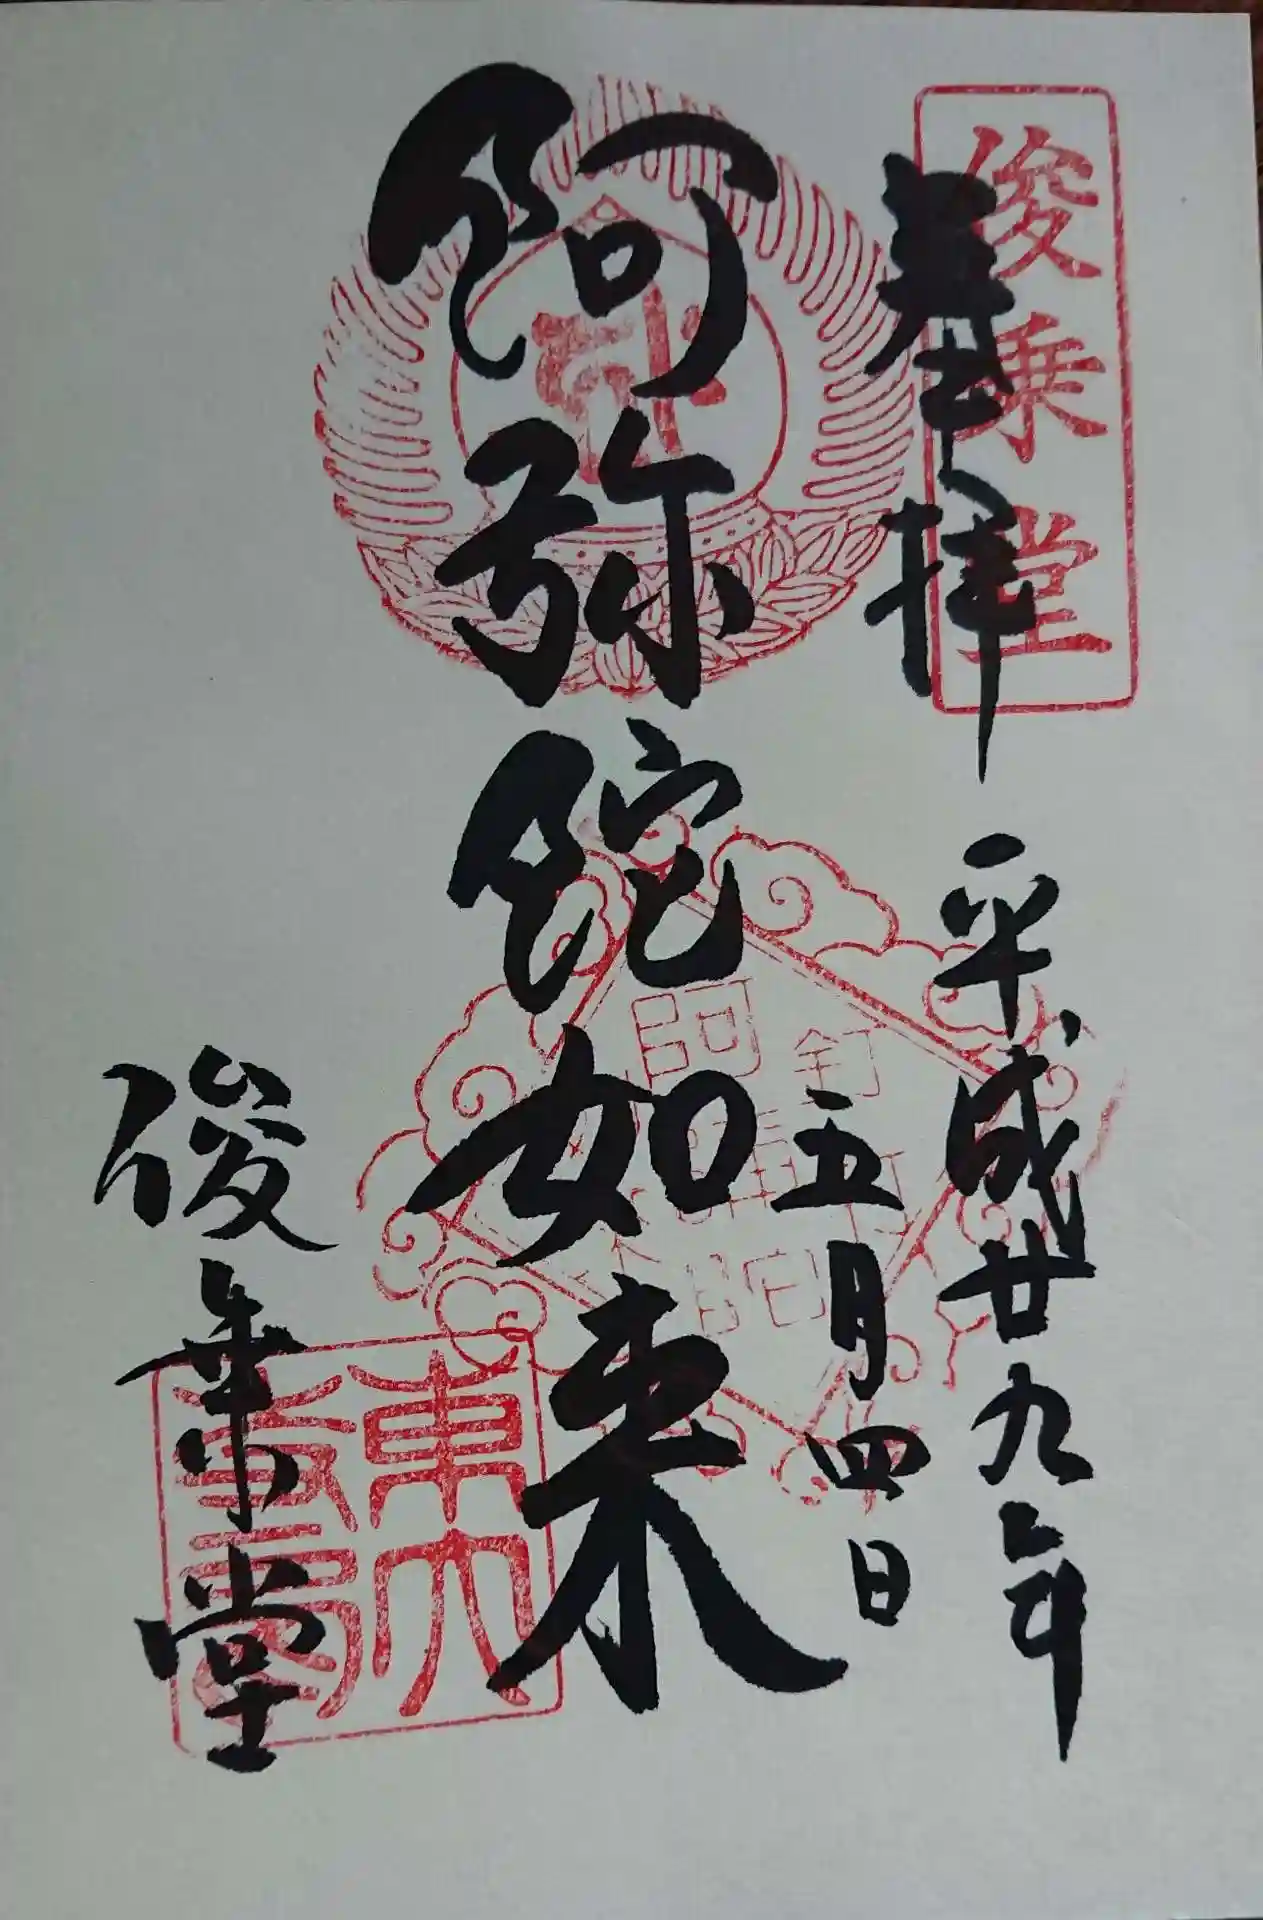 俊乗堂
奉拝
平成廿九年
五月四日
阿弥陀如来
俊乗堂
東大